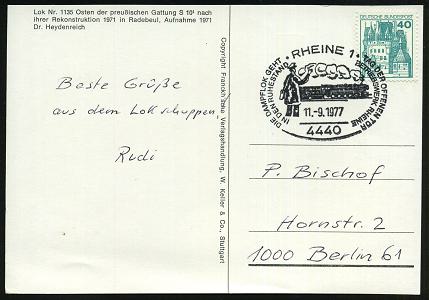 Lok Nr. 1135 Osten der preußischen Gattung S 10¹ nach
ihrer Rekonstruktion 1971 in Radebeul, Aufnahme 1971
Dr. Heydenreich
Beste Grüße
aus dem Lokschuppen
Rudi
Copyright Franckh'sche Verlagshandlung, W. Keller & Co., Stuttgart
RHEINE 1
DIE DAMPFLOK GEHT
IN DEN RUHESTAND
TAG DER OFFENEN TÜR
BETRIEBSWERK RHEINE
11.-9.1977
4440
DEUTSCHE BUNDESPOST
40
P. Bischof
Hornstr. 2
1000 Berlin 61